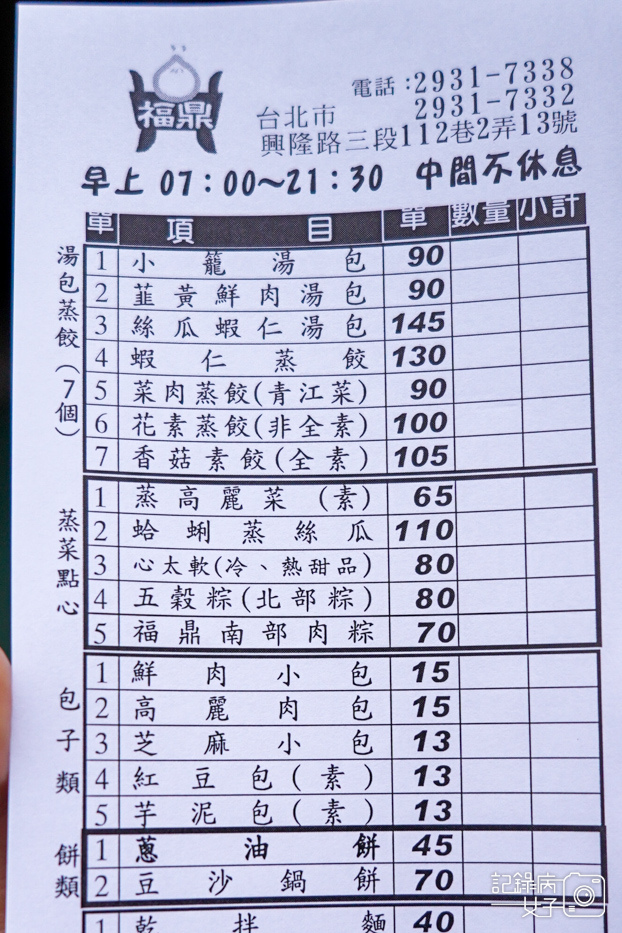 福鼎
電話:2931-7338
2931-7332
台北市
興隆路三段112巷2弄13號
早上 07:00~21:30 中間不休息
單 項目 單 數量 小計
湯包蒸餃(7個)
1 小籠湯包 90
2 韮黃鮮肉湯包 90
3 絲瓜蝦仁湯包 145
4 蝦仁蒸餃 130
5 菜肉蒸餃(青江菜) 90
6 花素蒸餃(非全素) 100
7 香菇素餃(全素) 105
蒸菜點心
1 蒸高麗菜(素) 65
2 蛤蜊蒸絲瓜 110
3 心太軟(冷、熱甜品) 80
4 五穀粽(北部粽) 80
5 福鼎南部肉粽 70
包子類
1 鮮肉小包 15
2 高麗肉包 15
3 芝麻小包 13
4 紅豆包(素) 13
5 芋泥包(素) 13
餅類
1 蔥油餅 45
2 豆沙鍋餅 70
1 乾拌麵 40
記錄病女子